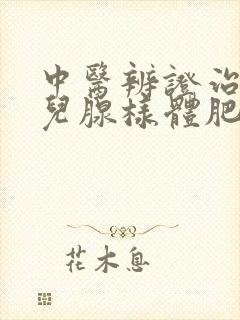 中醫辨證治
兒腺樣體肥
花木息